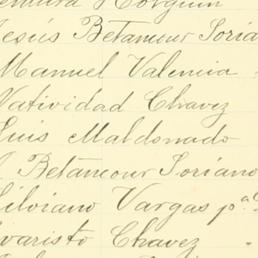 Holguin
Jesús Betancour Soria
Manuel Valencia
Natividad Chavez
Luis Maldonado
Betancour Soriano
Silviano Vargas p.a
Evaristo Chavez